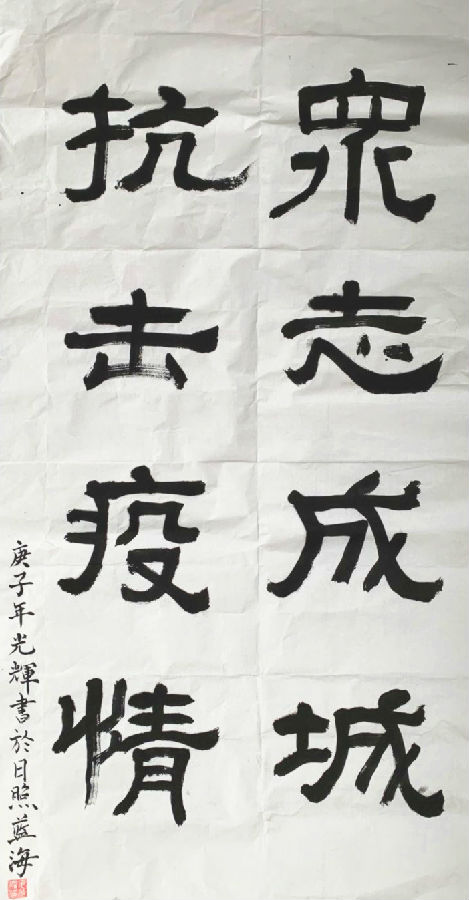 眾志成城
抗击疫情
庚子年光輝書於日照蓝海